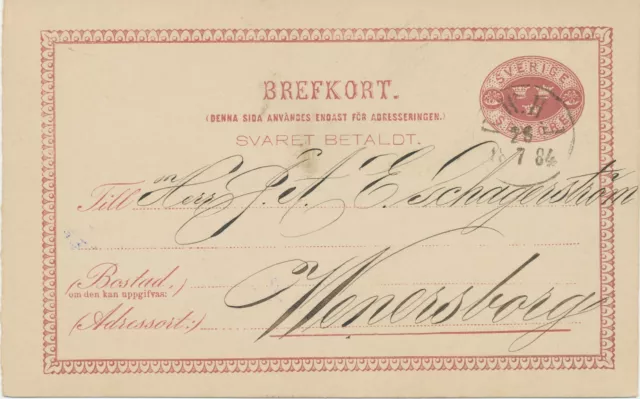 SVERIGE
BREFKORT.
(DENNA SIDA ANVÄNDES ENDAST FÖR ADRESSERINGEN.)
SVARET BETALDT.
26
7 84
Till Herr J. A. E. Schagerström
(Bostad.
om den kan uppgifvas:)
(Adressort:) Wenersborg